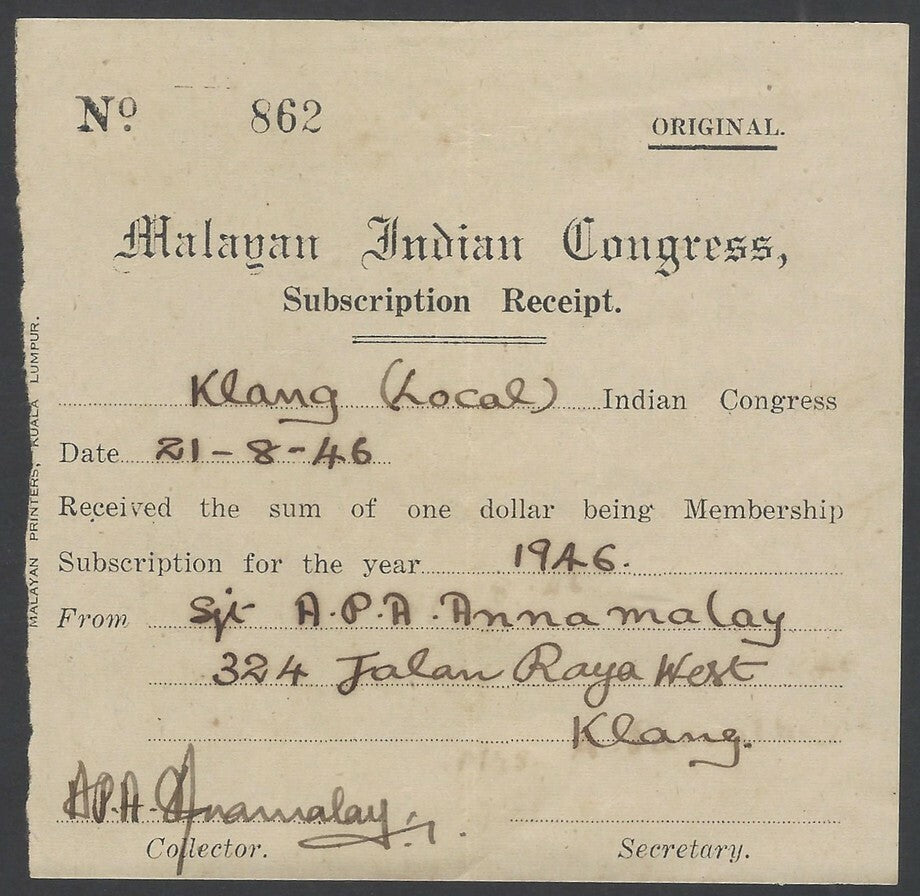 No. 862
ORIGINAL.
Malayan Indian Congress,
Subscription Receipt.
Klang (Local) Indian Congress
Date 21-8-46
Received the sum of one dollar being Membership
Subscription for the year 1946.
From Sjt A.P.A. Annamalay
324 Jalan Raya West
Klang.
A.P.A. Annamalay
Collector. Secretary.
MALAYAN PRINTERS, KUALA LUMPUR.